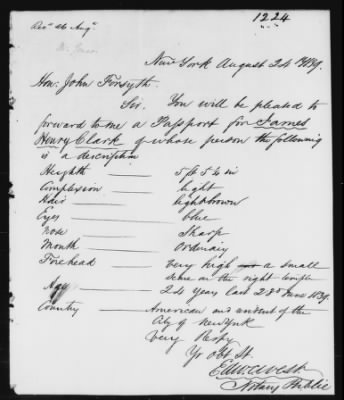 1224
Recd 26 Augt
Mr. Jones
New York August 24 1839.
Hon. John Forsyth.
Sir. You will be pleased to
forward to me a Passport for James
Henry Clark of whose person the following
is a description
Heighth 5 ft 5 1/2 in
Complexion light
Hair light brown
Eyes blue
Nose Sharp
Mouth Ordinary
Forehead very high a small
on the right temple
Age 24 years last June 1839.
Country American and resident of the
City of New York
Very Respy
Yr Obt St.
Notary Public